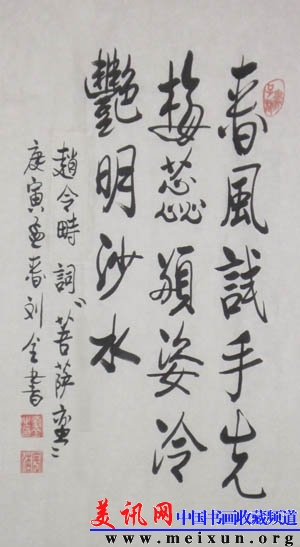 春風試手先
梅蕊頩姿冷
艷明沙水
趙令時詞菩薩蛮
庚寅孟春刘全書
美讯网 中国书画收藏频道
www.meixun.org